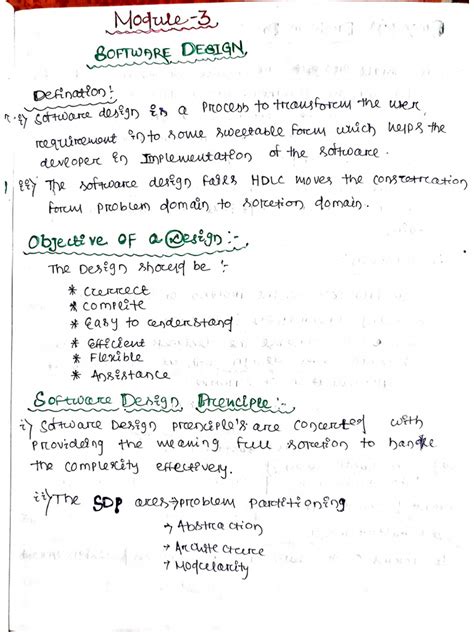 Module-3
SOFTWARE DESIGN
Defination:-
i) Software design is a process to transform the user
requirement into some sweetable form which helps the
developer in Implementation of the software.
ii) The software design falls HDLC moves the constatrcation
form problem domain to solction domain.
Objective OF a Design:-
The Design should be :-
* Cuerrect
* Complite
* Easy to cenderstand
* Efficient
* Flexible
* Ansistance
Software Design Prenciple:-
i) Software Design prenciple's are concerted with
providing the meaning full solction to handle
the complexity effectively.
ii) The SDP ares→problem partitioning
→ Abstraction
→ Architecture
→ Modcylarity